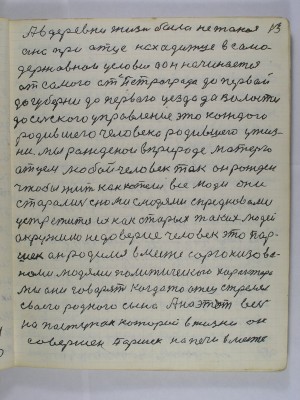 13
А в деревни жизн была не такая
она при отце находитце в само
державном условие он начинается
от самого от Петрограда до первой
до губерни до первого уезда да волости
до сельского управление это каждого
родившего человека родившего у жиз
ни. мы рождоной в природе матерю
отцем любой человек так он рожден
чтобы жит как жили все люди они
старались с ними с людями с предковами
устретитса их как старых таких людей
окружило недоверие человек это пар-
шек он родился вместе с организова-
ными людями политического характера
мы они говорят когда то отец стрелял
своего родного сына А на этот век
на поступак которой в жизни он
совершен Паршек на печи вместе